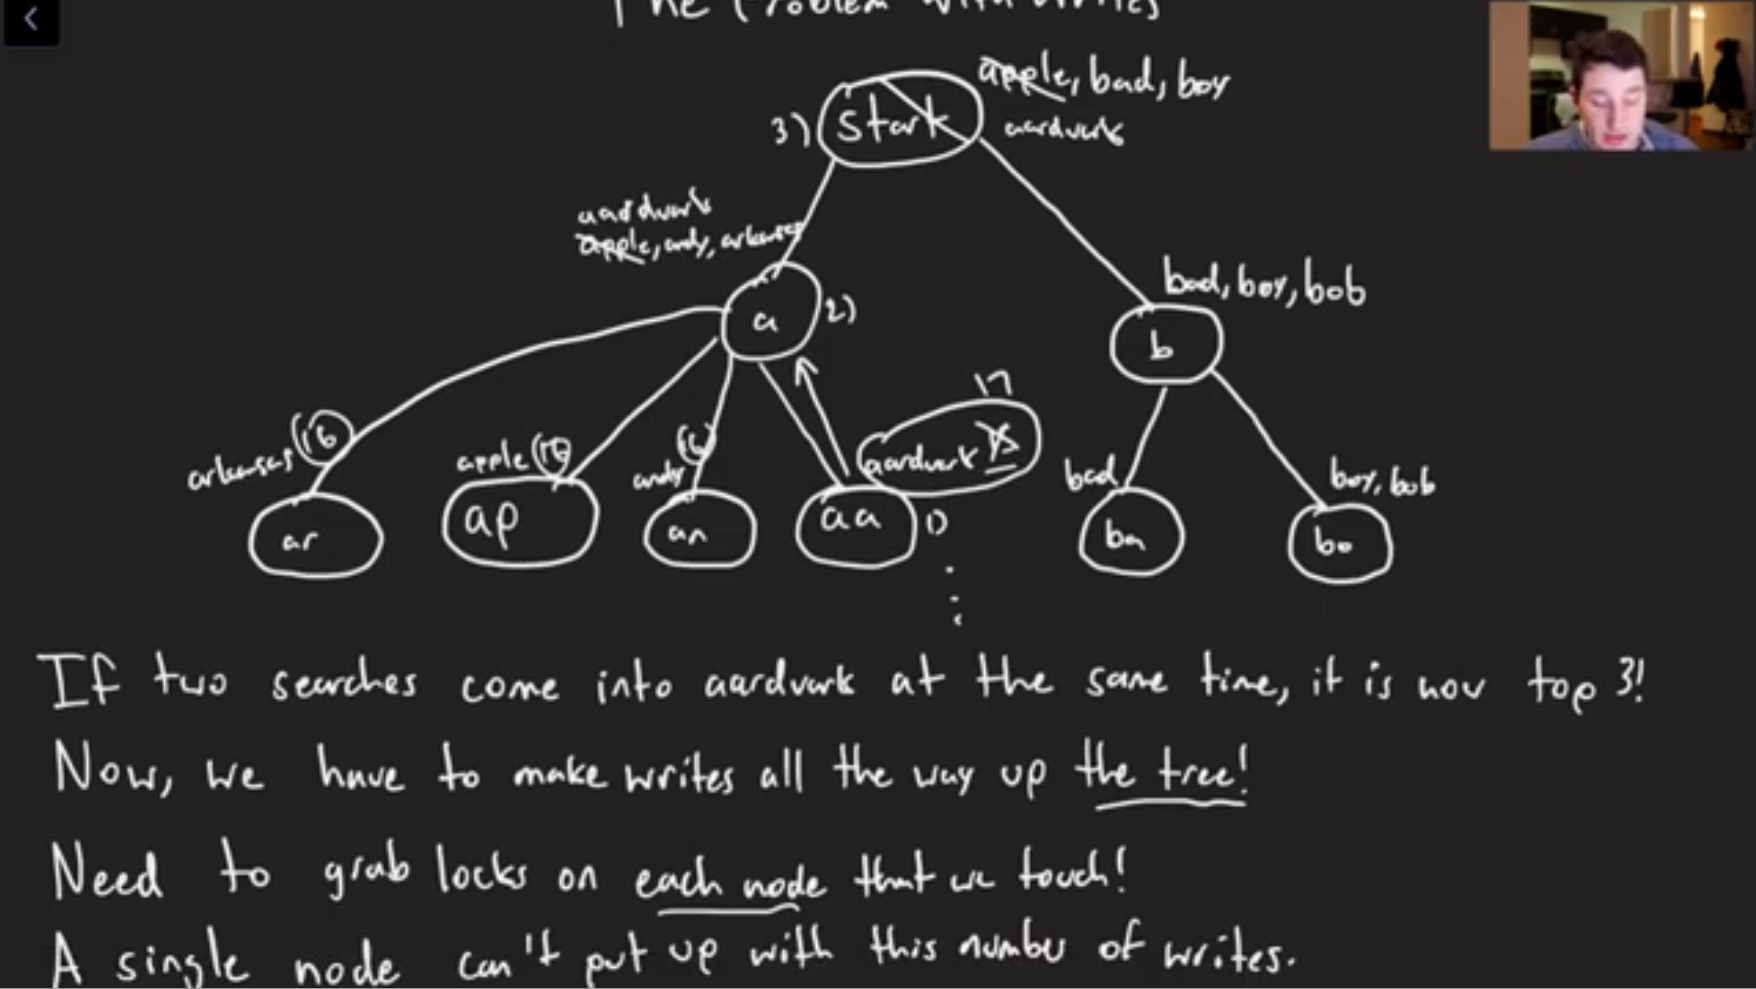 The Problem with Writes
apple, bad, boy
3) start aardvark
aardvark
apple, andy, arkansas
a 2)
bad, boy, bob
b
17
arkansas 16
apple
andy
aardvark 15
bad
boy, bob
ar
ap
an
aa 1)
ba
bo
If two searches come into aardvark at the same time, it is now top 3!
Now, we have to make writes all the way up the tree!
Need to grab locks on each node that we touch!
A single node can't put up with this number of writes.